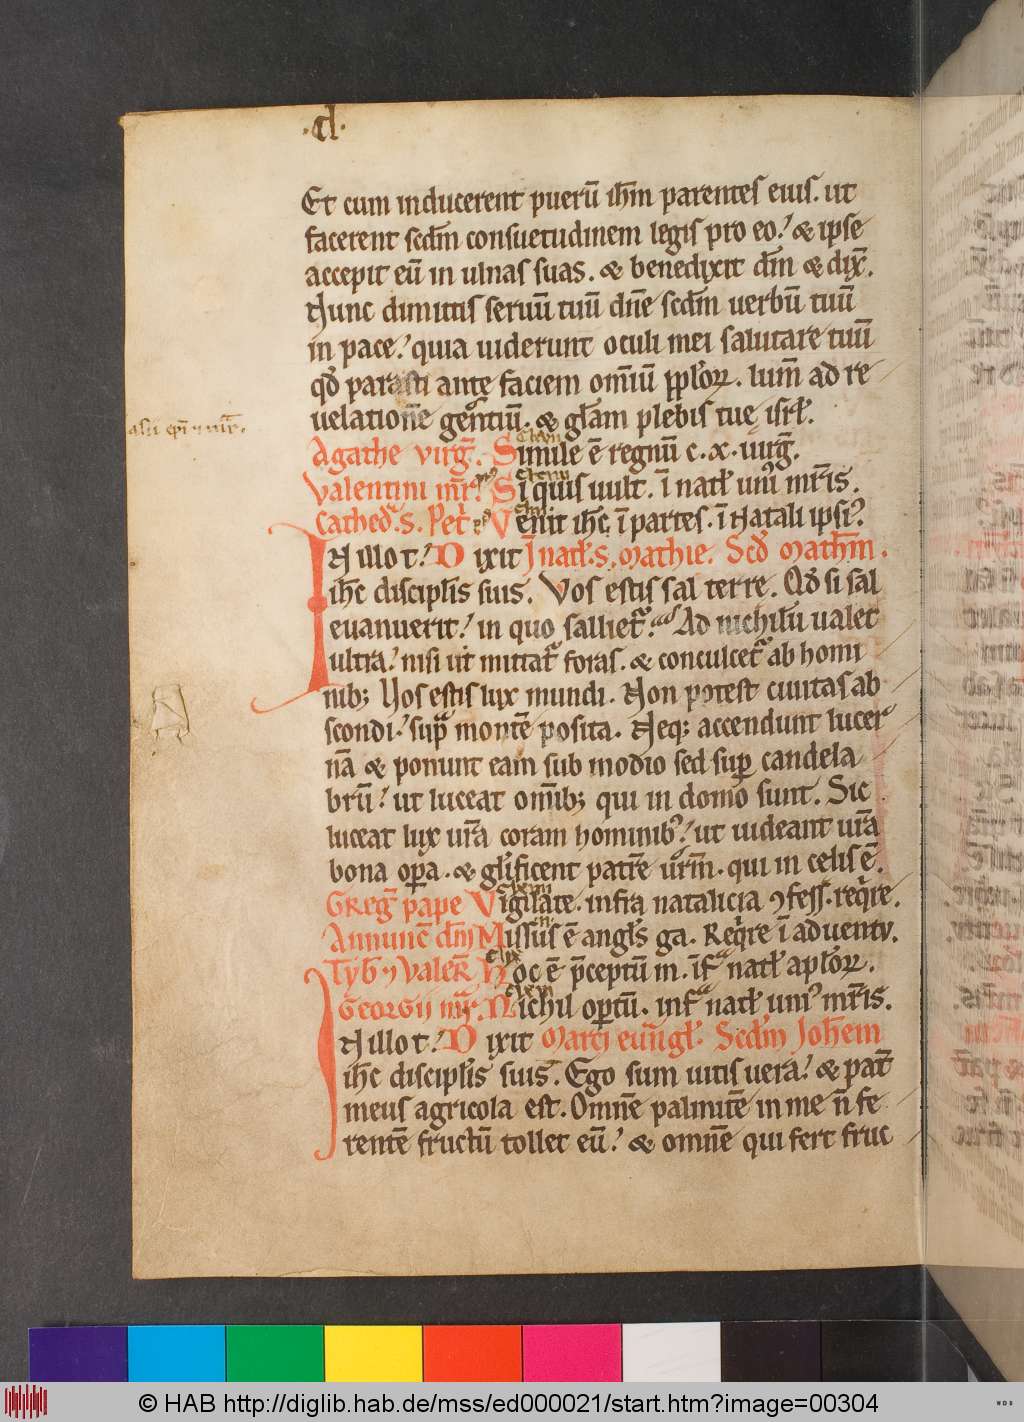 .cl.
Et cum inducerent puerū ih̄m parentes eius. ut
facerent scd̄m consuetudinem legis pro eo.' & ipse
accepit eū in ulnas suas. & benedixit dm̄ & dix̄.
Nunc dimittis seruū tuū dn̄e scd̄m uerbū tuū
in pace.' quia uiderunt oculi mei salutare tuū
qd̄ parasti ante faciem omīū pplōꝝ. lum̄ ad re
uelationē gentiū. & glām plebis tuę isrł.
Agathe virḡ. Simile ē regnū c. x. uirḡ.
Valentini mr̄. Si quis uult. ī natł uniꝰ mr̄is.
Cathed̄. S. Pet̄ Venit ih̄c ī partes. ī Natali ipsiꝰ.
IN illo t.' Dixit In natł. s. Mathie. Scd̄ Math̄m.
ih̄c discipłis suis. Vos estis sal terre. Qd̄ si sal
euanuerit.' in quo salliet̄.' Ad nichilū ualet
ultra.' nisi ut mittat̄ foras. & conculcet̄ ab homi
nibꝫ Vos estis lux mundi. Non potest ciuitas ab
scondi.' sup̄ montē posita. Neqꝫ accendunt lucer
nā & ponunt eam sub modio sed suꝑ candela
brū.' ut luceat om̄ibꝫ qui in domo sunt. Sic
luceat lux ur̄a coram hominibꝰ.' ut uideant ur̄a
bona oꝑa. & glīficent patrē ur̄m. qui in celis ē.
Greḡ pape Vigilate. infra natalicia ꝯfess. reqͥre.
Annunc̄ dn̄i Missus ē angłs ga. Reqͥre ī aduentu.
Tyb̄ ⁊ Valer̄ Hoc ē p̄ceptū m. īfͣ natł aplōꝝ.
Georgii mr̄. Nichil oꝑtū. infͣ natł uniꝰ mr̄is.
IN illo t.' Dixit Marci euāgł. Scd̄m Joh̄em
ih̄c discipłis suis. Ego sum uitis uera.' & pat̄
meus agricola est. Omnē palmitē in me n̄ fe
rentē fructū tollet eū.' & omnē qui fert fruc
© HAB http://diglib.hab.de/mss/ed000021/start.htm?image=00304